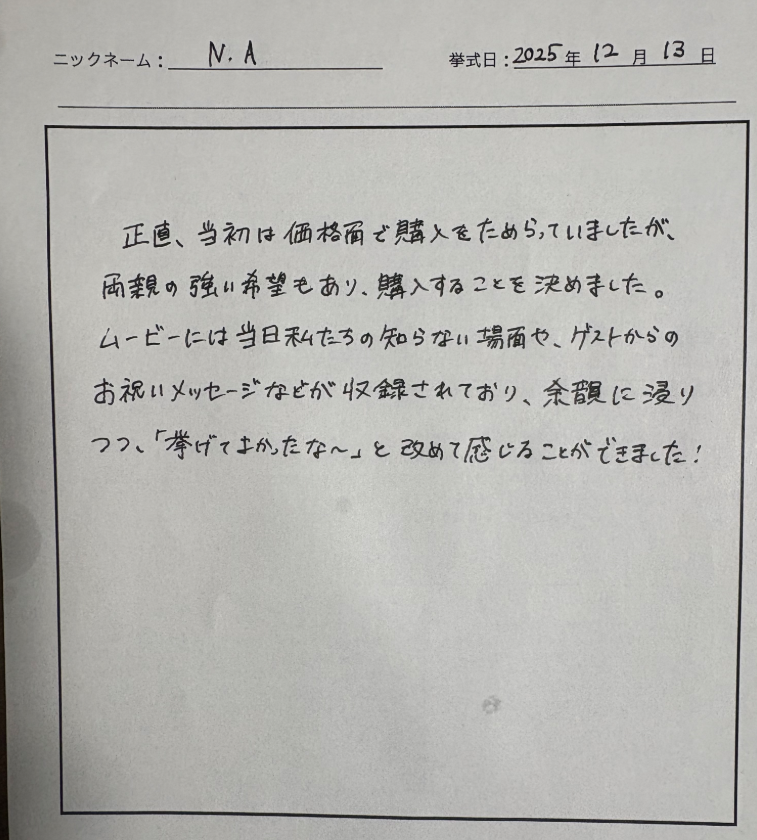 ニックネーム： N.A
挙式日：2025年 12月 13日
正直、当初は価格面で購入をためらっていましたが、
両親の強い希望もあり、購入することを決めました。
ムービーには当日私たちの知らない場面や、ゲストからの
お祝いメッセージなどが収録されており、余韻に浸り
つつ、「挙げてよかったな〜」と改めて感じることができました!